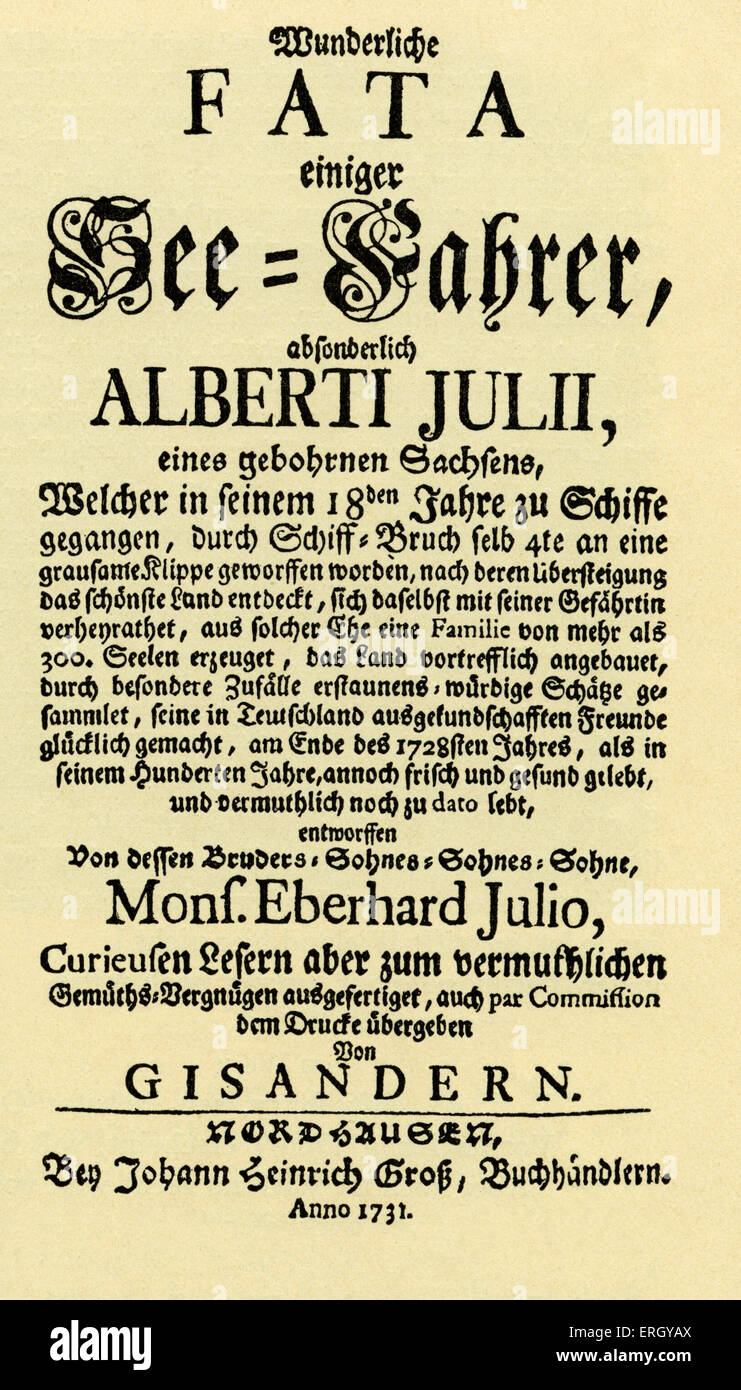 Wunderliche
FATA
einiger
See=Fahrer,
absonderlich
ALBERTI JULII,
eines gebohrnen Sachsens,
Welcher in seinem 18den Jahre zu Schiffe
gegangen, durch Schiff=Bruch selb 4te an eine
grausame Klippe geworffen worden, nach deren Übersteigung
das schönste Land entdeckt, sich daselbst mit seiner Gefährtin
verheyrathet, aus solcher Ehe eine Familie von mehr als
300. Seelen erzeuget, das Land vortrefflich angebauet,
durch besondere Zufälle erstaunens=würdige Schätze ge=
sammlet, seine in Teutschland ausgekundschafften Freunde
glücklich gemacht, am Ende des 1728sten Jahres, als in
seinem Hunderten Jahre, annoch frisch und gesund gelebt,
und vermuthlich noch zu dato lebt,
entworffen
Von dessen Bruders=Sohnes=Sohnes=Sohne,
Mons. Eberhard Julio,
Curieusen Lesern aber zum vermuthlichen
Gemüths=Vergnügen ausgefertiget, auch par Commission
dem Drucke übergeben
Von
GISANDERN.
NORDHAUSEN,
Bey Johann Heinrich Groß, Buchhändlern.
Anno 1731.
a alamy
alamy
a
a
alamy
a
alamy stock photo
ERGYAX
www.alamy.com